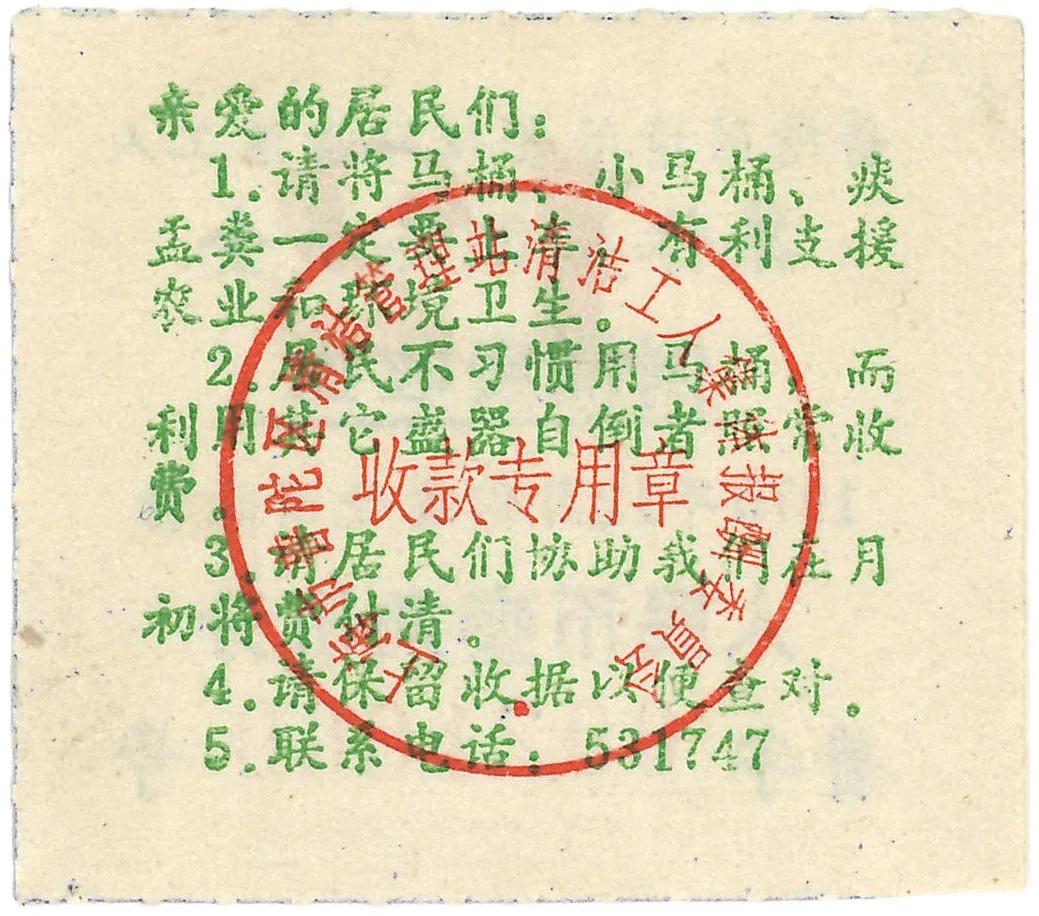 亲爱的居民们:
1.请将马桶、小马桶、痰
盂粪一定要上 有利支援
农业和环境卫生。
2.居民不习惯用马桶,而
利用其它盛器自倒者照常收
费。
3.请居民们协助我们在月
初将费付清。
4.请保留收据以便查对。
5.联系电话:531747
上海市普陀区清洁管理站清洁工人 报酬委员会
收款专用章